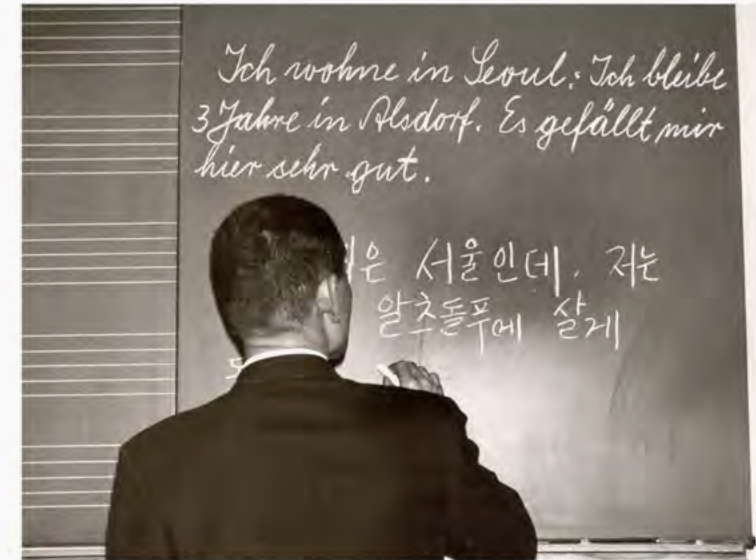 Ich wohne in Seoul. Ich bleibe
3 Jahre in Alsdorf. Es gefällt mir
hier sehr gut.
서울인데. 저는
알츠돌푸에 살게